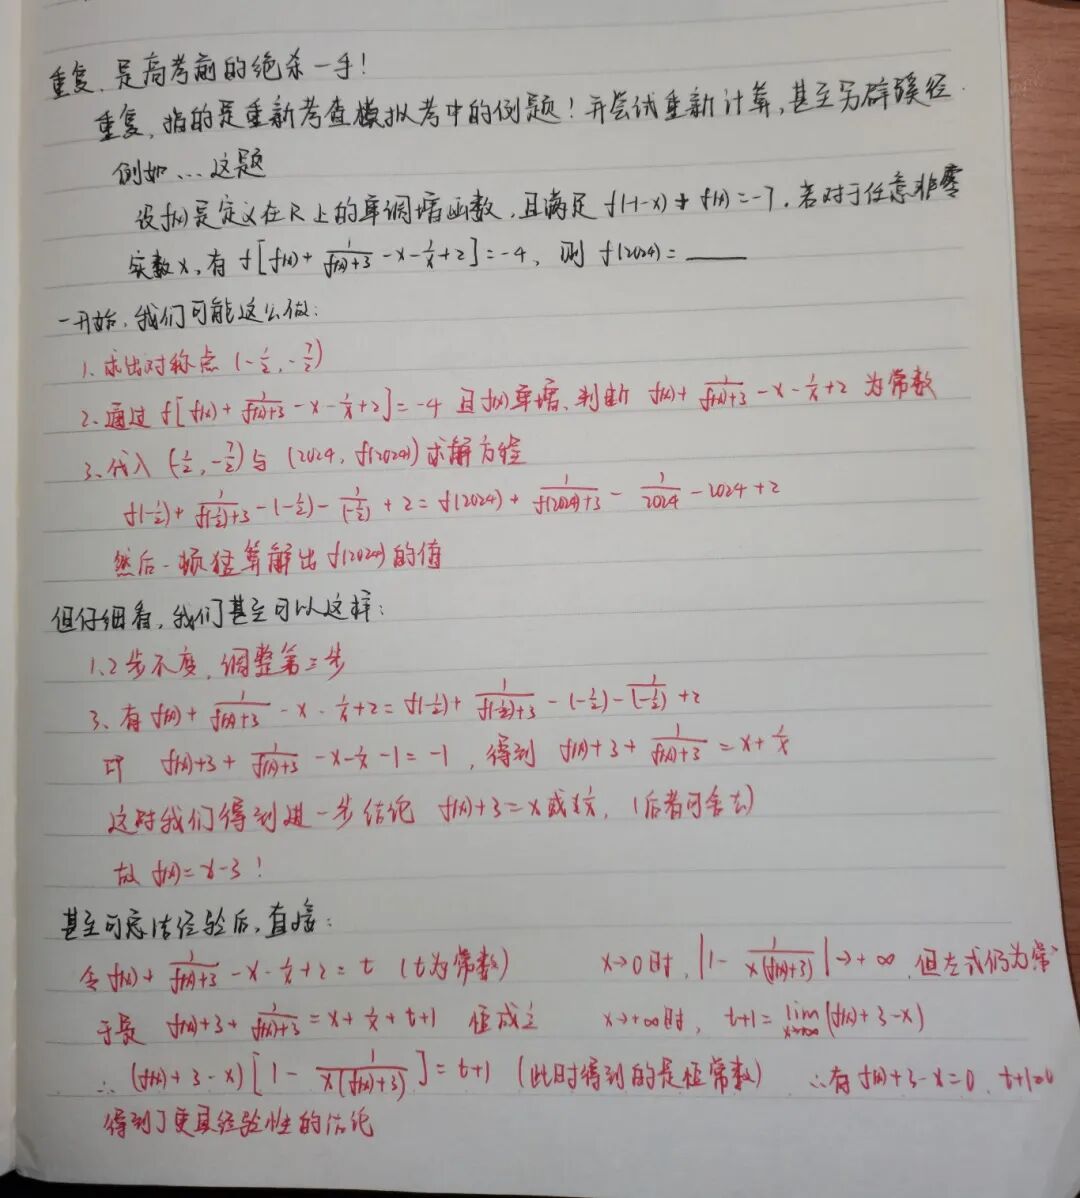 重复,是高考前的绝杀一手!
重复,指的是重新考查模拟考中的例题!并尝试重新计算,甚至另辟蹊径.
例如…这题
设f(x)是定义在R上的单调增函数,且满足 f(-1-x)+f(x)=-7,若对于任意非零
实数x,有 f[f(x)+1/(f(x)+3)-x-1/x+2]=-4,则 f(2024)=____
一开始,我们可能这么做:
1、求出对称点 (-1/2,-7/2)
2、通过 f[f(x)+1/(f(x)+3)-x-1/x+2]=-4 且f(x)单增、判断 f(x)+1/(f(x)+3)-x-1/x+2 为常数
3、代入 (-1/2,-7/2)与 (2024,f(2024))求解方程
f(-1/2)+1/(f(-1/2)+3)-(-1/2)-1/(-1/2)+2=f(2024)+1/(f(2024)+3)-1/2024-2024+2
然后一顿猛算解出f(2024)的值
但仔细看,我们甚至可以这样:
1、2步不变,调整第三步
3、有 f(x)+1/(f(x)+3)-x-1/x+2=f(-1/2)+1/(f(-1/2)+3)-(-1/2)-1/(-1/2)+2
即 f(x)+3+1/(f(x)+3)-x-1/x-1=-1,得到 f(x)+3+1/(f(x)+3)=x+1/x
这时我们得到进一步结论 f(x)+3=x或1/x,(后者可舍去)
故 f(x)=x-3!
甚至可总结经验后,直接:
令 f(x)+1/(f(x)+3)-x-1/x+2=t (t为常数) x→0时,|1-1/(x(f(x)+3))|→+∞,但左式仍为常
于是 f(x)+3+1/(f(x)+3)=x+1/x+t+1 恒成立 x→+∞时,t+1=lim x→+∞ (f(x)+3-x)
∴(f(x)+3-x)[1-1/(x(f(x)+3))]=t+1 (此时得到的是恒常数) ∴有f(x)+3-x=0、t+1=0
得到了更具经验性的结论